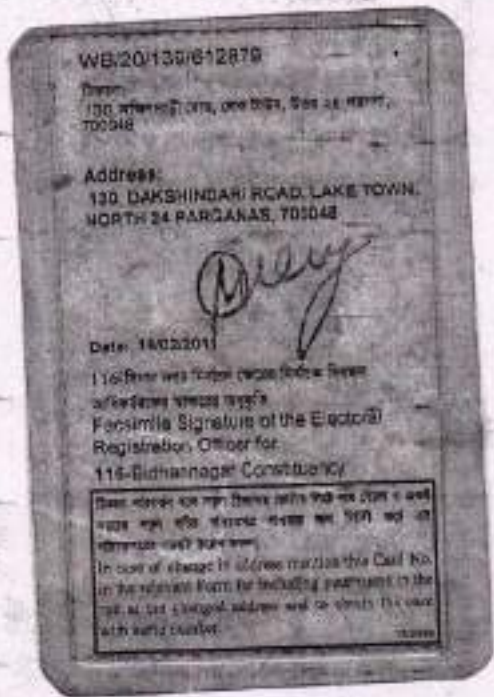 WB/20/139/612879
ঠিকানা:
130, দক্ষিণদাঁড়ী রোড, লেক টাউন, উত্তর ২৪ পরগনা,
700048
Address:
130, DAKSHINDARI ROAD, LAKE TOWN,
NORTH 24 PARGANAS, 700048
Date:
116-বিধান নগর নির্বাচন ক্ষেত্রের নির্বাচক নিবন্ধন
আধিকারিকের স্বাক্ষরের অনুকৃতি
Facsimile Signature of the Electoral
Registration Officer for
116-Bidhannagar Constituency
In case of change in address mention this Card No.
in the relevant Form for including your name in the
roll at the changed address and to obtain the card
with same number.